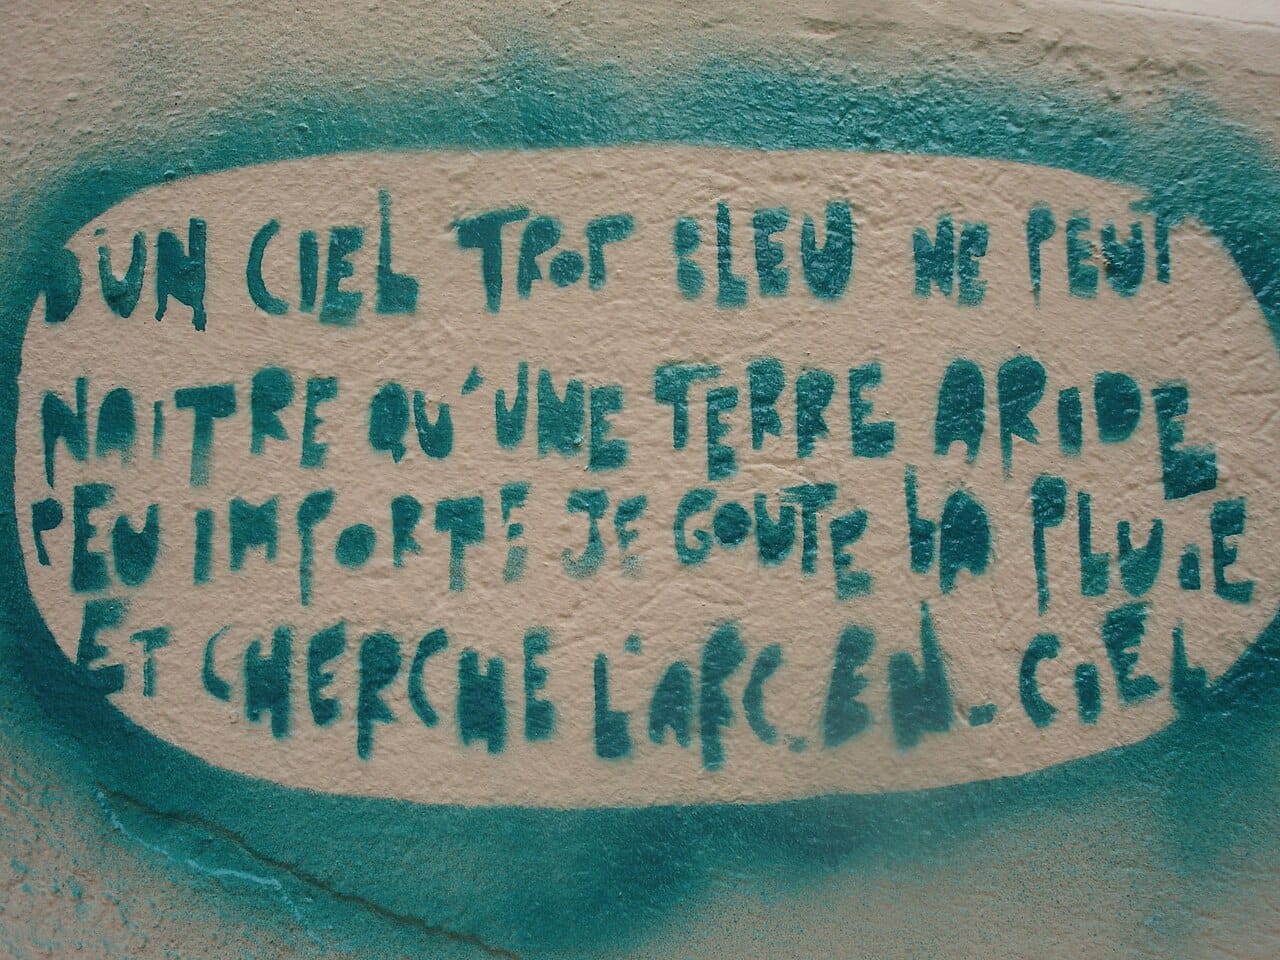 D'UN CIEL TROP BLEU NE PEUT
NAITRE QU'UNE TERRE ARIDE
PEU IMPORTE JE GOUTE LA PLUIE
ET CHERCHE L'ARC.EN-CIEL